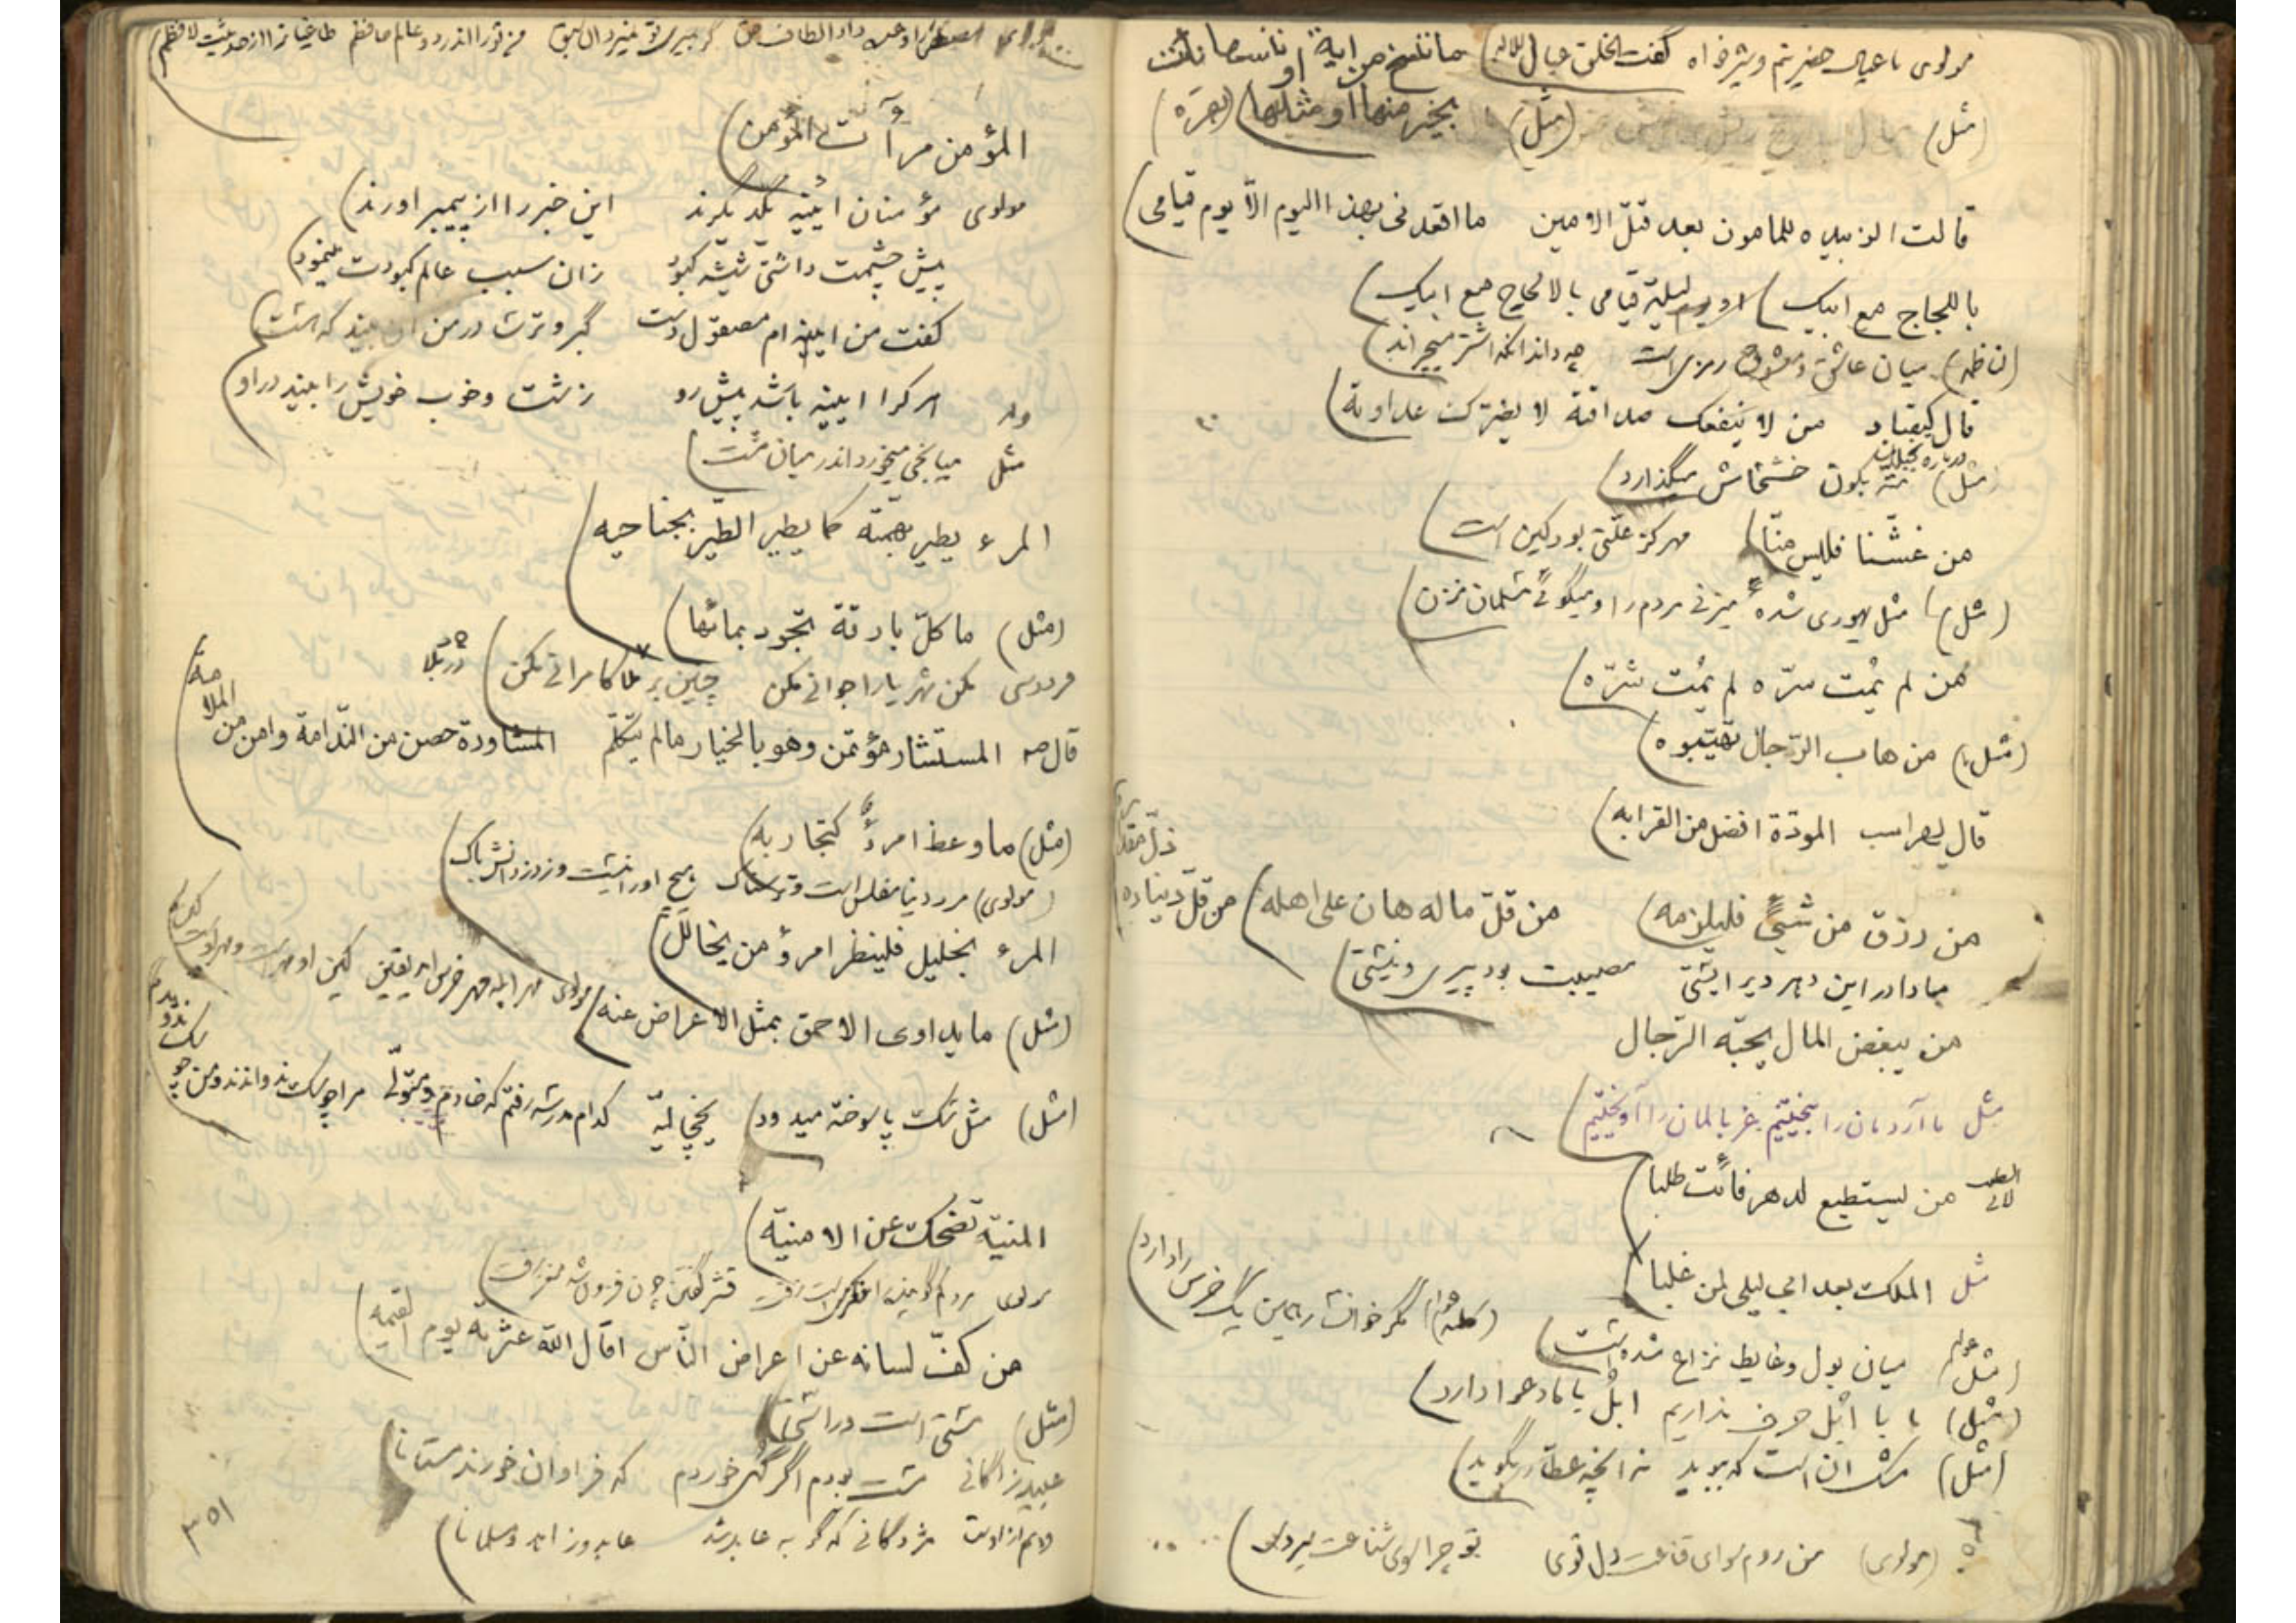 مولوی ما عیال حضرتیم و شیرخواه گفت الخلق عیال للاله ما ننسخ من ایة او ننسها نأت
(مثل) (مثل) بخیر منها او مثلها (بقره)
قالت الزبیده للمامون بعد قتل الامین ما اقعدنی بهذا الیوم الّا یوم قیامی
باللجاج مع ابیک لیلة قیامی بالالحاح مع ابیک
میان عاشق و معشوق رمزی است چه داند آنکه اشتر میچراند
قال کیقباد من لا ینفعک صداقة لا یضرک عداوتة
(مثل) درباره بخیلان متّه بکون خشخاش میگذارد
من غشّنا فلیس منّا مهر کز علّتی بود کین است
(مثل) مثل یهودی شدهٔ میزنی مردم را و میگوئی مسلمان نزن
من لم یمت سرّه لم یمت شرّه
(مثل) من هاب الرّجال تهیّبوه
قال لهراسب المودّة افضل من القرابه
من رزق من شیئً فلیلزمه من قلّ ماله هان علی اهله من قلّ دیناره
ذلّ مقداره
مبادا در این دهر دیر ایستی مصیبت بود پیری و نیستی
من یبغض المال یحبّه الرّجال
مثل ما آردمان را بیختیم غربالمان را آویختیم
من یستطیع لدهر فائت طلبا
مثل الملک بعد ابی لیلی لمن غلبا
مگر خوانسار همین یک خرس را دارد
(مثل) عوام میان بول و غایط نزاع شده است
(مثل) ما با ابُل حرف نداریم ابُل با ما دعوا دارد
(مثل) مشک آن است که ببوید نه آنچه عطار بگوید
(مولوی) من روم سوای قناعت دل قوی تو چرا سوی شناعت میروی
مصطفی را وعده داد الطاف حق گر بمیری تو نمیرد این سبق من تو را اندر دو عالم حافظم طاغیان را از حدیثت لافظم
المؤمن مرآت المؤمن
مولوی مؤمنان ایینه یکدیگرند این خبر را از پیمبر اورند
پیش چشمت داشتی شیشه کبود زان سبب عالم کبودت مینمود
گفت من ایینه ام مصقول دست گبر و ترسا در من آن بیند که هست
وله هر کرا ایینه باشد پیش رو زشت و خوب خویش را بیند در او
مثل میانجی میخورد اندر میان مشت
المرء یطیر بهمّته کما یطیر الطّیر بجناحیه
(مثل) ما کلّ بارقة تجود بمائها
فردوسی مکن شهریارا جوانی مکن چنین بر بلا کامرانی مکن
قال صه المستشار مؤتمن وهو بالخیار ما لم یتکلّم المشاورة حصن من النّدامة وامن من الملامة
(مثل) ما وعظ امرءً کتجاربه
(مولوی) مرد دنیا مفلس است و ترسناک هیچ او را نیست وز دزدانش باک
المرء بخلیل فلینظر امرؤ من یخالل
(مثل) ما یداوی الاحمق بمثل الاعراض عنه مولوی مهر ابله مهر خرس امد یقین کین او مهر است و مهر اوست کین
(مثل) مثل سگ پا سوخته میدود یخچالیّه کدام مدرسه رفتم که خادم و متولّی مرا چو سگ ندواندند و من چو سگ ندویدم
المنیّه تضحک عن الامنیّة
من کفّ لسانه عن اعراض النّاس اقال اللّه عثرته یوم القیمه
(مثل)
عبید زاکانی مست بودم اگر گهی خوردم که فراوان خورند مستانا
مژدگانی که گربه عابد شد عابد و زاهد و مسلمانا
۳۵۱